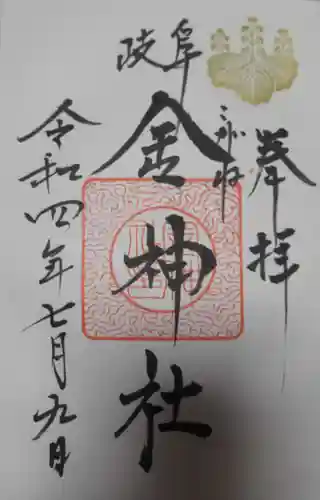 奉拝
こがね
岐阜
金神社
令和四年七月九日